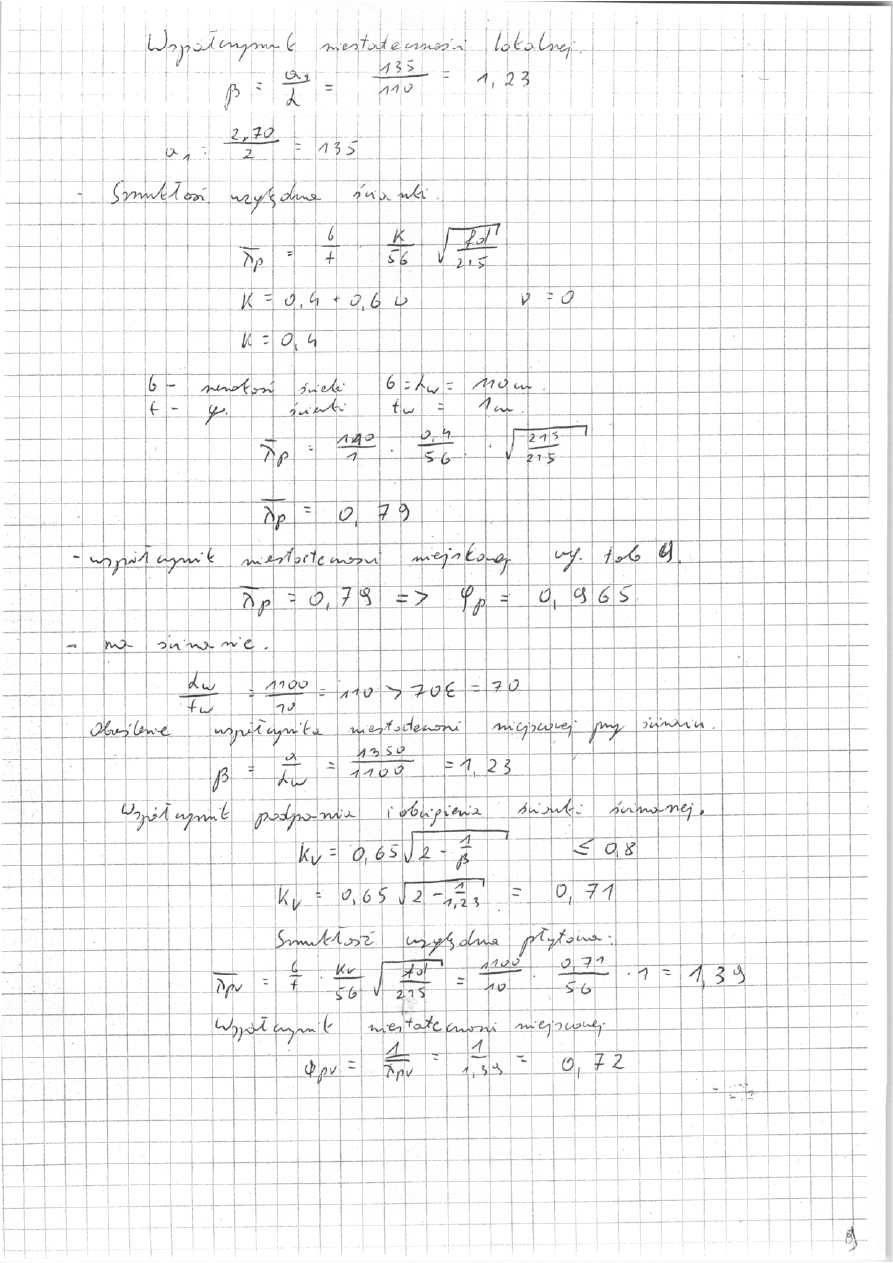 Współczynnik niestateczności lokalnej.
β = a₁/d = 135/110 = 1,23
a₁ : 2,70/2 = 135
- Smukłość względna ścianki.
λ̄p = b/t · K/56 √(fd/215)
K = 0,4 + 0,6 υ υ = 0
K = 0,4
b - szerokość ścianki b = hw = 110 cm.
t - gr. ścianki tw = 1 cm.
λ̄p = 110/1 · 0,4/56 · √(215/215)
λ̄p = 0,79
- współczynnik niestateczności miejscowej wg. tab 9.
λ̄p = 0,79 => φp = 0,965
- na ścinanie.
hw/tw = 1100/10 = 110 > 70ε = 70
Określenie współczynnika niestateczności miejscowej przy ścinaniu.
β = a/hw = 1350/1100 = 1,23
Współczynnik podparcia i obciążenia ścianki ścinanej.
Kv = 0,65 √(2 - 1/β) ≤ 0,8
Kv = 0,65 √(2 - 1/1,23) = 0,71
Smukłość względna płytowa:
λ̄pv = b/t · Kv/56 √(fd/215) = 1100/10 · 0,71/56 · 1 = 1,39
Współczynnik niestateczności miejscowej
φpv = 1/λ̄pv = 1/1,39 = 0,72